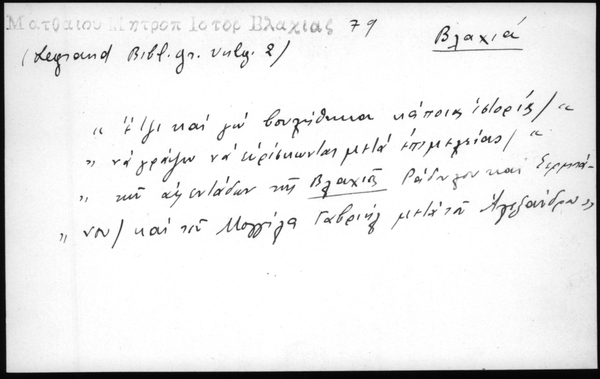 Ματθαίου Μητροπ Ιστορ Βλαχίας 79
Βλαχιά
(Legrand Bibl. gr. vulg. 2)
" Ἔτζι καὶ γὼ βουλήθηκα κάποιες ἱστορίες / "
" νὰ γράψω νὰ εὑρίσκωνται μετὰ ἐπιμελείας / "
" τῶν αὐθεντάδων τῆς Βλαχιᾶς Ράδουλου καὶ Σερμπά-
" νου / καὶ τοῦ Μογγίλα Γαβριὴλ μετὰ τοῦ Ἀλεξάνδρου "